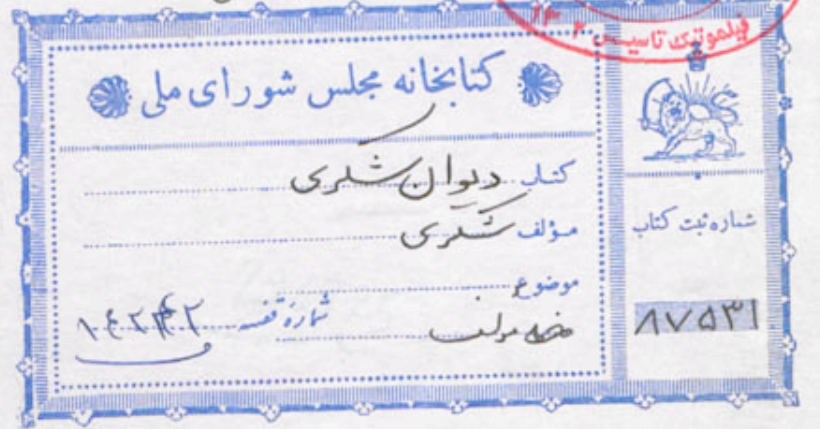 فیلموتک تاسیس
کتابخانه مجلس شورای ملی
کتاب دیوان شکری
مؤلف شکری
موضوع
شماره قفسه
شماره ثبت کتاب
۸۷۵۳۱